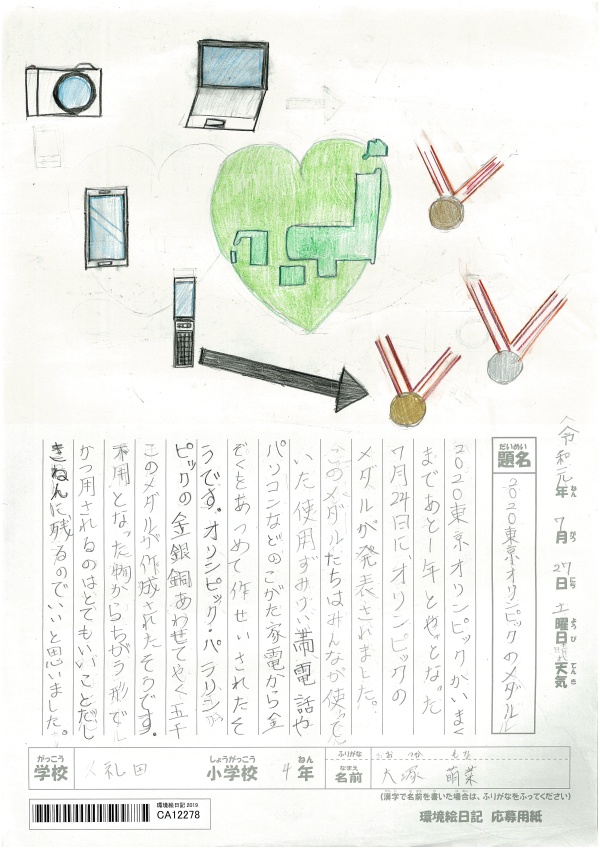 令和元年 7月27日 土曜日 天気
ねん がつ にち ようび てんき
だいめい
題名 2020東京オリンピックのメダル
2020東京オリンピックかいまく
まであと1年とせまった
7月24日に、オリンピックの
メダルが発表されました。
このメダルたちはみんなが使って
いた使用ずみけい帯電話や
パソコンなどのこがた家電から金
ぞくをあつめて作せいされたそ
うです。オリンピック・パラリン
ピックの金銀銅あわせてやく五千
このメダルが作成されたそうです。
不用となった物からちがう形で
かつ用されるのはとてもいいことだし
きねんに残るのでいいと思いました。
がっこう しょうがっこう ねん ふりがな おおつか もな
学校 久礼田 小学校 4年 なまえ 名前 大塚 萌菜
(漢字で名前を書いた場合は、ふりがなをふってください)
環境絵日記 2019
CA12278
環境絵日記 応募用紙